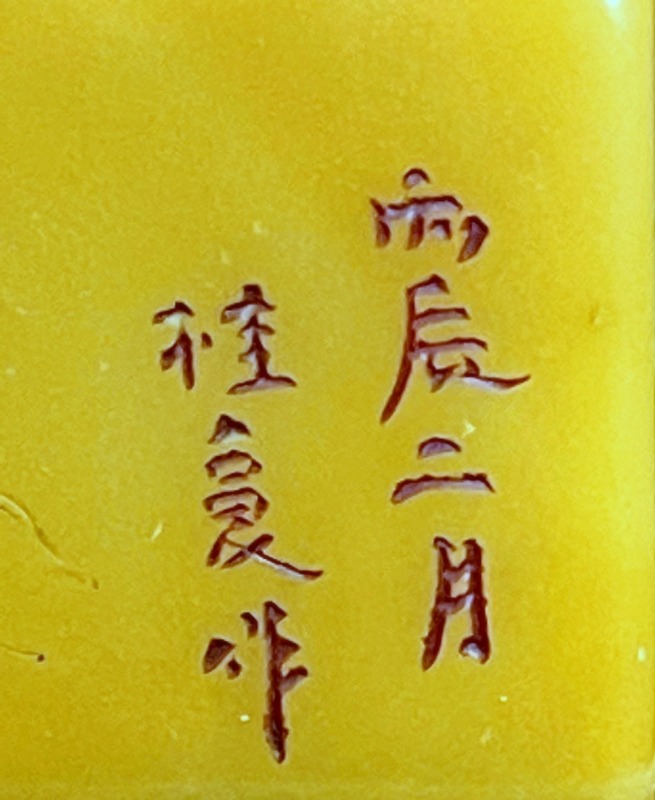 丙辰二月
桂作